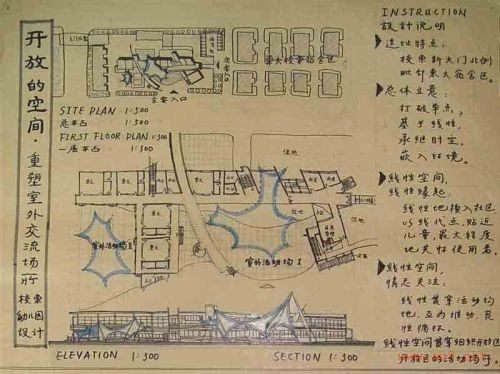 开放的空间·重塑室外交流场所
校東
幼儿园
设计
主要入口
次要入口
SITE PLAN 1:500
总平面 1:500
FIRST FLOOR PLAN 1:300
一层平面 1:300
绿地
绿地
室外活动场II
室外活动场I
ELEVATION 1:300
SECTION 1:300
INSTRUCTION
設計说明
选址特点:
校東新大门北侧
毗邻東大宿舍区
总体立意:
打破单点,
基于线性,
承继时空,
嵌入环境。
线性空间,
线性缘起:
线性地揳入社区
以线代点,贴近
儿童,最大程度
地关怀使用者。
线性空间,
情志关注:
线性共享活动场
地,互为推动,良
性循环。
线性空间共享组织开放区